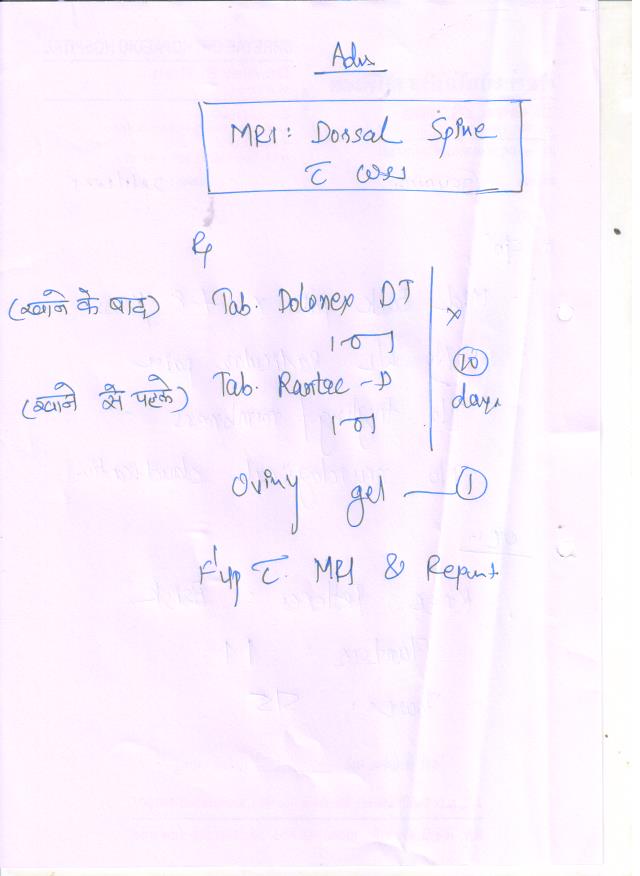 Adv.
MRI: Dorsal Spine
c̄ WSS
Rp
(खाने के बाद) Tab. Dolonex DT
1-0-1
(खाने से पहले) Tab. Rantac-D
1-0-1
x
10
days
gel — 1
F'up c̄. MRI & Report